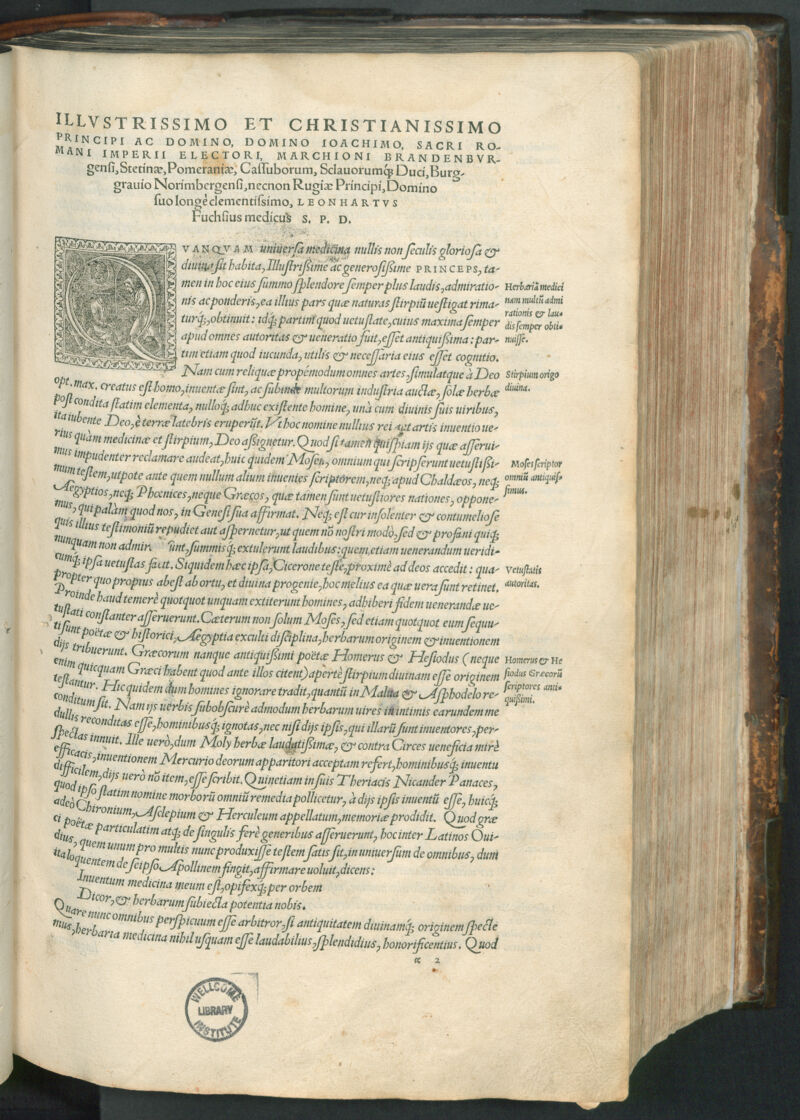 ILLVSTRISSIMO ET CHRISTIANISSIMO
PRINCIPI AC DOMINO, DOMINO IOACHIMO, SACRI RO-
MANI IMPERII ELECTORI, MARCHIONI BRANDENBVR-
gensi, Stetinæ, Pomeraniæ, Cassuborum, Sclauorumq́; Duci, Burg-
grauio Norimbergensi, necnon Rugiæ Principi, Domino
suo longè clementissimo, LEONHARTVS
Fuchsius medicus S. P. D.
QVANQVAM uniuersa medicina nullis non seculis gloriosa &
diuina sit habita, Illustrissime ac generosissime PRINCEPS, ta-
men in hoc eius summo splendore semper plus laudis, admiratio-
nis ac ponderis, ea illius pars quæ naturas stirpiũ uestigat rima-
turq́;, obtinuit: idq́; partim quod uetustate, cuius maxima semper
apud omnes autoritas & ueneratio fuit, esset antiquissima: par-
tim etiam quod iucunda, utilis & necessaria eius esset cognitio.
Herbariã medici
nam multũ admi
rationis & lau-
dis semper obti-
nuisse.
Nam cum reliquæ propemodum omnes artes, simulatque à Deo
opt. max. creatus est homo, inuentæ sint, ac subinde multorum industria auctæ, solæ herbæ
post condita statim elementa, nulloq́; adhuc existente homine, unà cum diuinis suis uiribus,
ita iubente Deo, è terræ latebris eruperũt. Vt hoc nomine nullius rei aut artis inuentio ue-
rius quàm medicinæ et stirpium, Deo assignetur. Quod si tamen quispiam ijs quæ asserui-
mus impudenter reclamare audeat, huic quidem Mosen, omnium qui scripserunt uetustissi-
mum testem, utpote ante quem nullum alium inuenies scriptorem, neq́; apud Chaldæos, neq́;
Aegyptios, neq́; Phœnices, neque Græcos, quæ tamen sunt uetustiores nationes, oppone-
mus, qui palàm quod nos, in Genesi sua affirmat. Neq́; est cur insolenter & contumeliose
quis illius testimoniũ repudiet aut aspernetur, ut quem nõ nostri modò, sed & profani quiq́;
nunquam non admir unt, summisq́; extulerunt laudibus: quem etiam uenerandum ueridi-
cumq́; ipsa uetustas facit. Siquidem hæc ipsa, Cicerone teste, proximè ad deos accedit: qua-
propter quo propius abest ab ortu, et diuina progenie, hoc melius ea quæ uera sunt retinet.
Stirpium origo
diuina.
Moses scriptor
omniũ antiquis-
simus.
Vetustatis
autoritas.
Proinde haud temerè quotquot unquam extiterunt homines, adhiberi fidem uenerandæ ue-
tustati constanter asseruerunt. Cæterum non solum Moses, sed etiam quotquot eum sequu-
ti sunt poëtæ & historici, Aegyptia exculti disciplina, herbarum originem & inuentionem
dijs tribuerunt. Græcorum nanque antiquissimi poëtæ Homerus & Hesiodus (neque
enim quicquam Græci habent quod ante illos citent) apertè stirpium diuinam esse originem
testantur. Hic quidem dum homines ignorare tradit, quantũ in Malua & Asphodelo re-
conditum sit. Nam ijs uerbis subobscurè admodum herbarum uires in intimis earundem me
dullis reconditas esse, hominibusq́; ignotas, nec nisi dijs ipsis, qui illarũ sunt inuentores, per-
spectas innuit. Ille uerò, dum Moly herbæ laudatissimæ, & contra Circes ueneficia mirè
efficacis, inuentionem Mercurio deorum apparitori acceptam refert, hominibusq́; inuentu
difficilem, dijs uerò nõ item, esse scribit. Quinetiam in suis Theriacis Nicander Panaces,
quod ipso statim nomine morborũ omniũ remedia pollicetur, à dijs ipsis inuentũ esse, huicq́;
adeò Chironium, Asclepium & Herculeum appellatum, memoriæ prodidit. Quod græ
ci poëtæ particulatim atq́; de singulis ferè generibus asseruerunt, hoc inter Latinos Oui-
dius, quem unum pro multis nunc produxisse testem satis sit, in uniuersum de omnibus, dum
ita loquentem de seipso Apollinem fingit, affirmare uoluit, dicens:
Homerus & He
siodus Græcorũ
scriptores anti-
quissimi.
Inuentum medicina meum est, opifexq́; per orbem
Dicor, & herbarum subiecta potentia nobis.
Quare nunc omnibus perspicuum esse arbitror, si antiquitatem diuinamq́; originem specte
mus, herbaria medicina nihil usquam esse laudabilius, splendidius, honorificentius. Quod
α 2
WELLCOME
LIBRARY
INSTITUTE